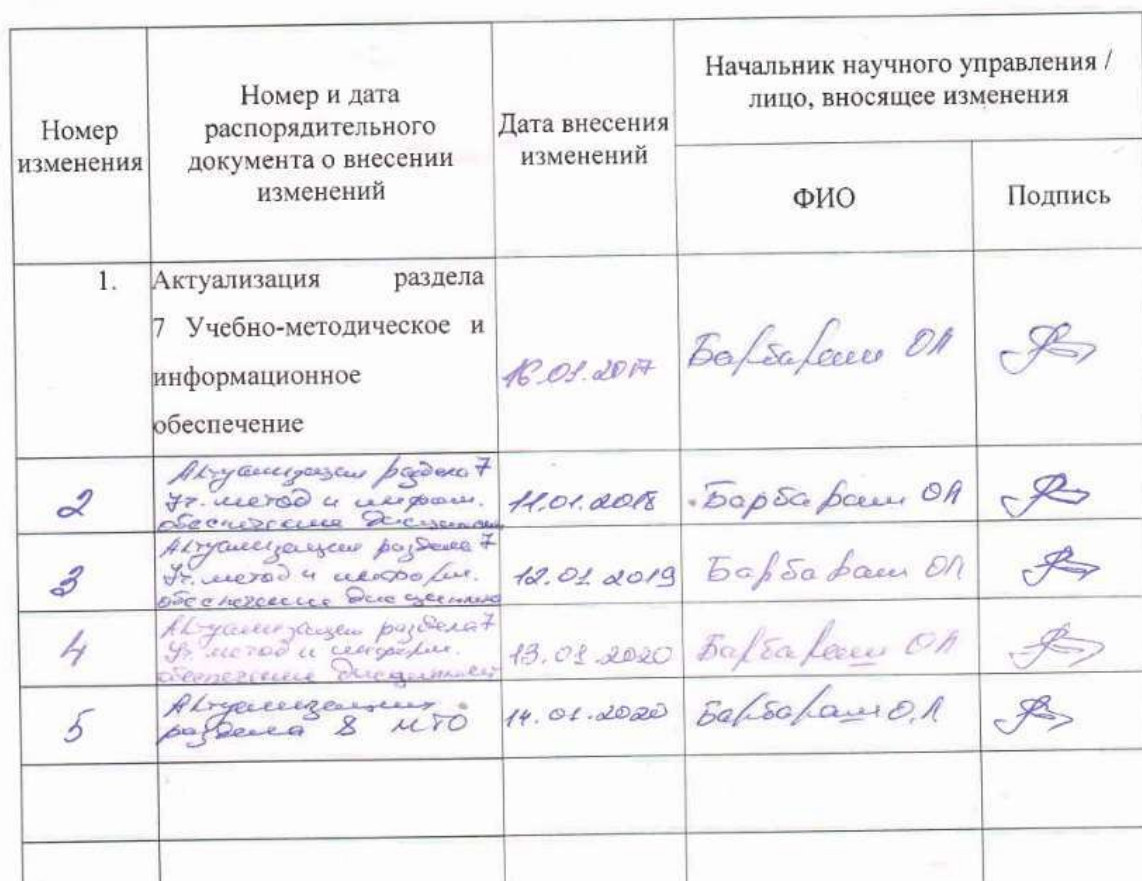 Номер
изменения
Номер и дата
распорядительного
документа о внесении
изменений
Дата внесения
изменений
Начальник научного управления /
лицо, вносящее изменения
ФИО
Подпись
1.
Актуализация раздела
7 Учебно-методическое и
информационное
обеспечение
16.01.2017
Барбараш ОЛ
2
Актуализация раздела 7
Уч. метод и информ.
обеспечение дисциплин
11.01.2018
Барбараш ОЛ
3
Актуализация раздела 7
Уч. метод и информ.
обеспечение дисциплин
12.01.2019
Барбараш ОЛ
4
Актуализация раздела 7
Уч. метод и информ.
обеспечение дисциплин
13.01.2020
Барбараш ОЛ
5
Актуализация
раздела 8 МТО
14.01.2020
Барбараш О.Л